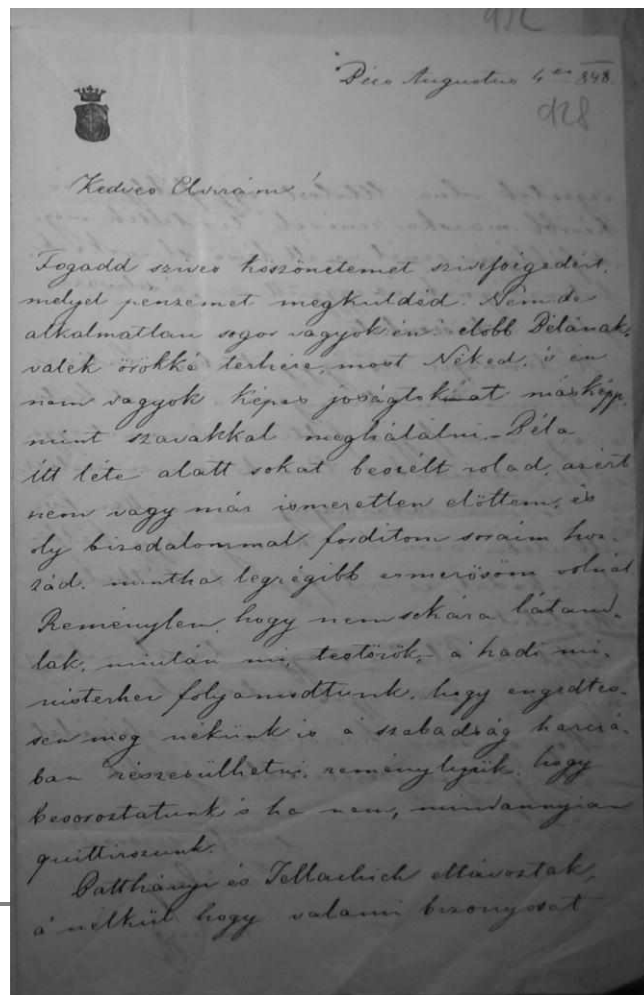 942
Bécs Augustus 4en 848.
928
Kedves Elvirám!
Fogadd szives köszönetemet szivességedért,
melyel pénzemet megküldéd. Nemde
alkalmatlan sogor vagyok én: elöbb Bélának,
valék örökké terhére, most Néked, is en
nem vagyok képes joságtokat másképp
mint szavakkal meghálálni. – Béla
itt léte alatt sokat beszélt rolad, azért
nem vagy már ismeretlen elöttem, és
oly bizodalommal forditom soraim hoz-
zád, mintha legrégibb ismerösöm volnál
Reménylem, hogy nem sokára látand-
lak, miután mi, testörök, a' hadi mi-
nisterhez folyamodtunk, hogy engedtes-
sen meg nekünk is a' szabadság harczá-
ban részesülhetni, reményljük, hogy
besoroztatunk 's ha nem, mindannyian
quittirozunk.
Batthányi és Jellachich eltávoztak,
a' nélkül hogy valami bizonyosat